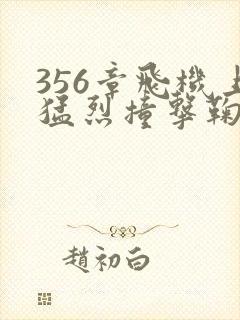 356章飛機上
猛烈撞撃鞠
趙初白